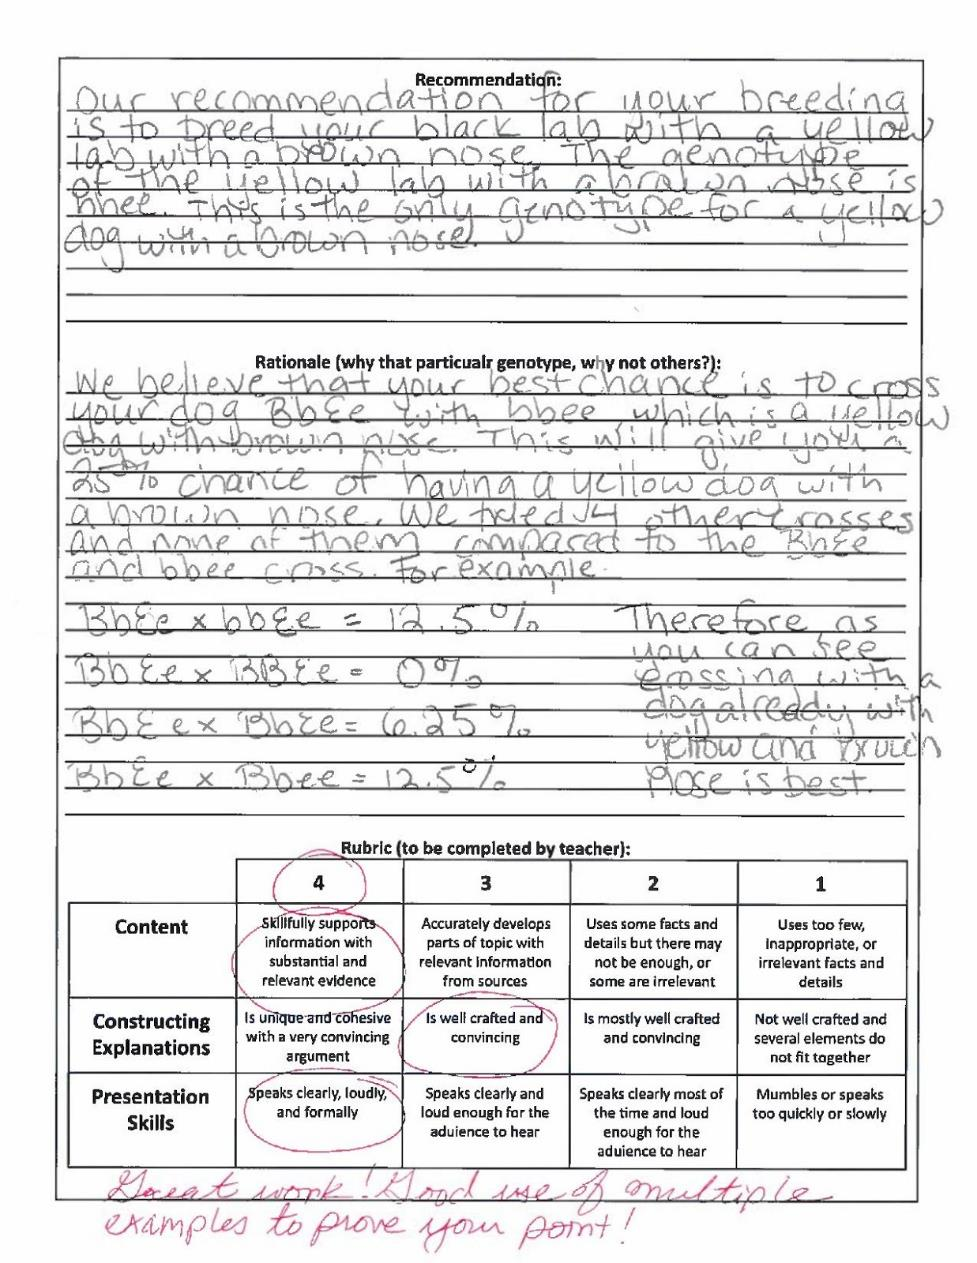 Recommendation:
Our recommendation for your breeding
is to breed your black lab with a yellow
lab with a brown nose. The genotype
of the yellow lab with a brown nose is
bbee. This is the only genotype for a yellow
dog with a brown nose.
Rationale (why that particualr genotype, why not others?):
We believe that your best chance is to cross
your dog BbEe with bbee which is a yellow
dog with brown nose. This will give you a
25% chance of having a yellow dog with
a brown nose. We tried 14 other crosses
and none of them compared to the BbEe
and bbee cross. For example.
BbEe x bbEe = 12.5%
BbEe x BBEe = 0%
BbEe x BbEe = 6.25%
BbEe x Bbee = 12.5%
Therefore as
you can see
crossing with a
dog already with
yellow and brown
Nose is best.
Rubric (to be completed by teacher):
4 3 2 1
Content
Skillfully supports
information with
substantial and
relevant evidence
Accurately develops
parts of topic with
relevant information
from sources
Uses some facts and
details but there may
not be enough, or
some are irrelevant
Uses too few,
inappropriate, or
irrelevant facts and
details
Constructing
Explanations
Is unique and cohesive
with a very convincing
argument
Is well crafted and
convincing
Is mostly well crafted
and convincing
Not well crafted and
several elements do
not fit together
Presentation
Skills
Speaks clearly, loudly,
and formally
Speaks clearly and
loud enough for the
aduience to hear
Speaks clearly most of
the time and loud
enough for the
aduience to hear
Mumbles or speaks
too quickly or slowly
Great work! Good use of multiple
examples to prove your point!